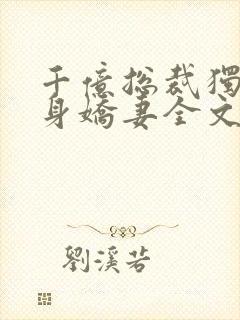 千億總裁獨
身嬌妻全文
劉溪若